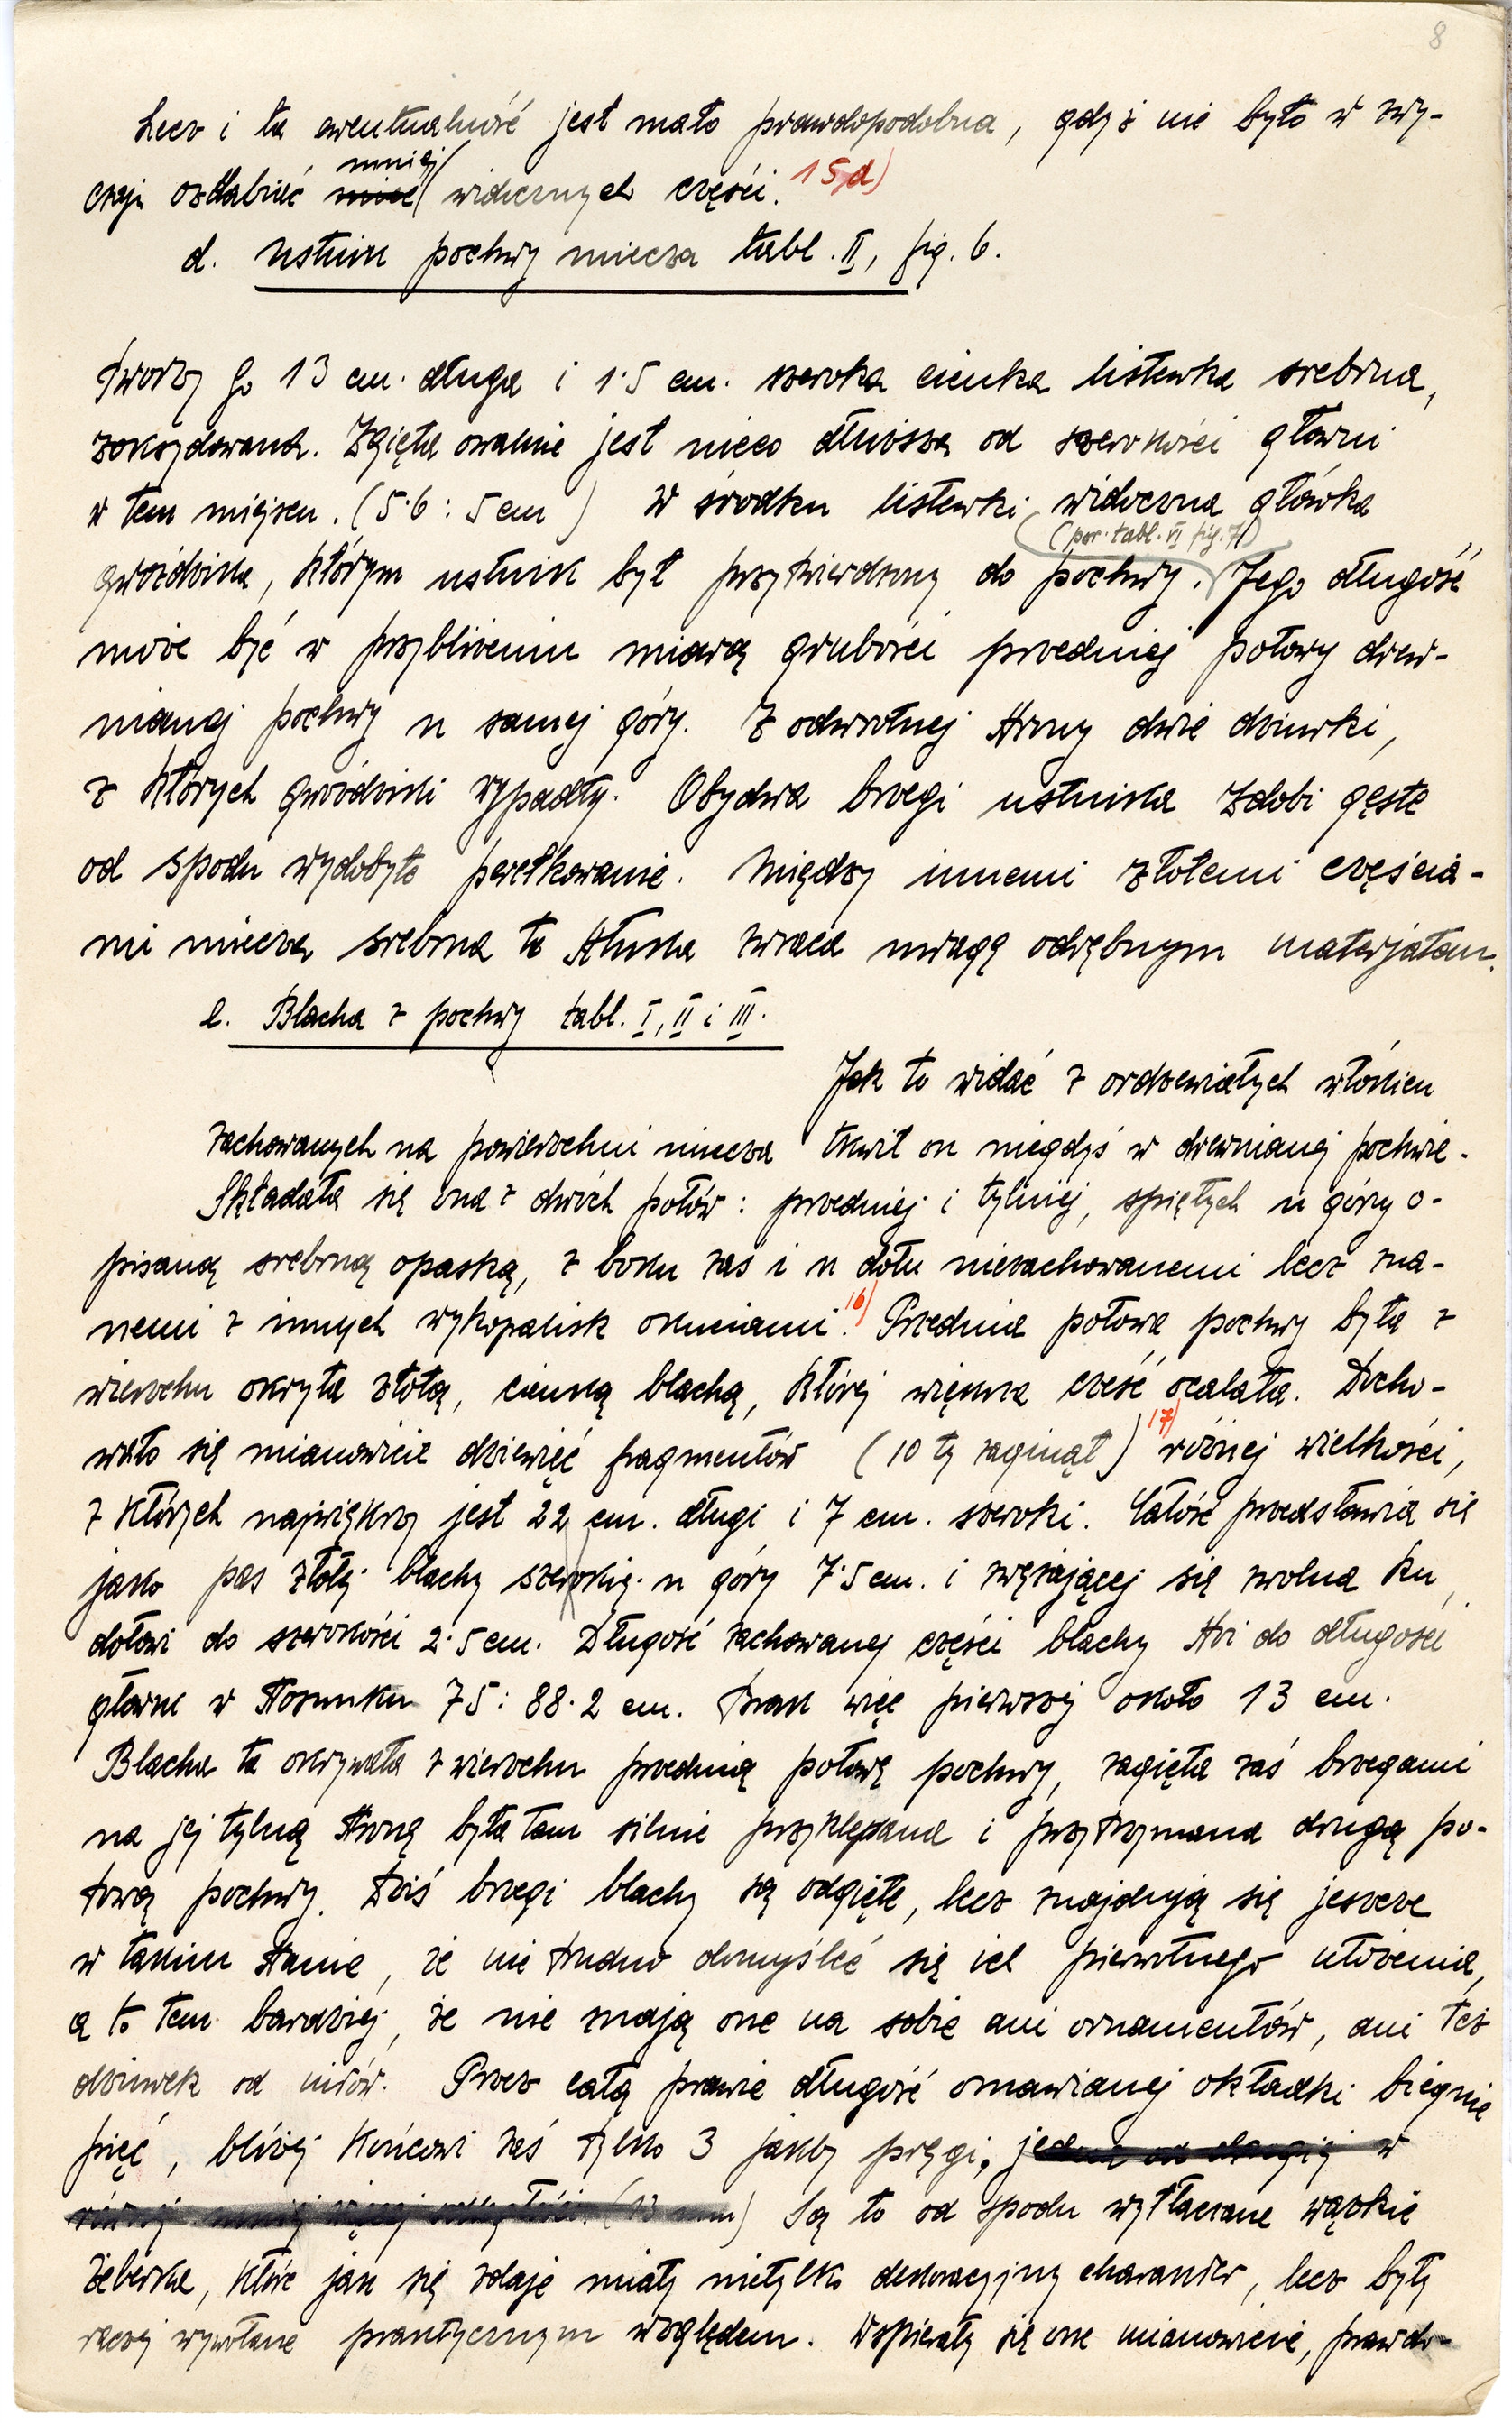 8
Lecz i ta ewentualność jest mało prawdopodobna, gdyż nie było w zwy-
czaju ozdabiać mniej widocznych części. 15d)
d. ustnik pochwy miecza tabl. II, fig. 6.
Tworzy go 13 cm. długa i 1·5 cm. szeroka cienka listewka srebrna,
zoksydowana. Zgięta owalnie jest nieco dłuższa od szerokości głowni
w tem miejscu. (5·6 : 5 cm) W środku listewki widoczna główka
(por. tabl. VI fig. 7)
gwoździka, którym ustnik był przytwierdzony do pochwy. Jego długość
może być w przybliżeniu miarą grubości przedniej połowy drew-
nianej pochwy u samej góry. Z odwrotnej strony dwie dziurki,
z których gwoździki wypadły. Obydwa brzegi ustnika zdobi gęste
od spodu wydobyte perełkowanie. Między innemi złotemi częścia-
mi miecza, srebrna ta sztuka zwraca uwagę odrębnym materjałem.
e. Blacha z pochwy tabl. I, II i III.
Jak to widać z ordzewiałych włókien
zachowanych na powierzchni miecza tkwił on niegdyś w drewnianej pochwie.
Składała się ona z dwóch połów: przedniej i tylniej, spiętych u góry o-
pisaną srebrną opaską, z boku zaś i u dołu niezachowanemi lecz zna-
nemi z innych wykopalisk okuciami. 16) Przednia połowa pochwy była z
wierzchu okryta złotą, cienką blachą, której większa cześć ocalała. Docho-
wało się mianowicie dziewięć fragmentów (10 ty zaginął) 17) różnej wielkości,
z których największy jest 22 cm. długi i 7 cm. szeroki. Całość przedstawia się
jako pas złotej blachy szerokiej u góry 7·5 cm. i zwężającej się zwolna ku
dołowi do szerokości 2·5 cm. Długość zachowanej części blachy stoi do długości
głowni w stosunku 75 : 88·2 cm. Brak więc pierwszej około 13 cm.
Blacha ta okrywała z wierzchu przednią połowę pochwy, zagięta zaś brzegami
na jej tylną stronę była tam silnie przyklepana i przytrzymana drugą po-
łową pochwy. Dziś brzegi blachy są odgięte, lecz znajdują się jeszcze
w takim stanie, że nie trudno domyśleć się ich pierwotnego ułożenia,
a to tem bardziej, że nie mają one na sobie ani ornamentów, ani też
dziurek od nitów. Przez całą prawie długość omawianej okładki biegnie
pięć, bliżej końcowi zaś tylko 3 jakby pręgi, jedna od drugiej w
równej mniej więcej odległości. (13 mm) Są to od spodu wytłaczane wązkie
żeberka, które jak się zdaje miały nietylko dekoracyjny charakter, lecz były
raczej wywołane praktycznym względem. Wspierały się one mianowicie, prawdo-